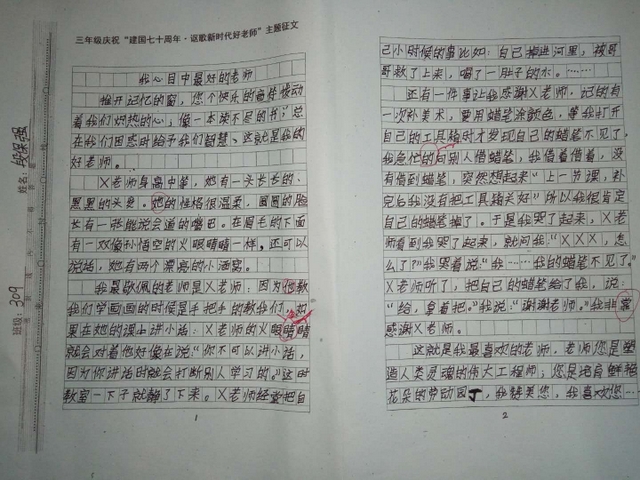 三年级庆祝“建国七十周年·讴歌新时代好老师”主题征文
我心目中最好的老师
推开记忆的窗，您个快乐的音符拨动
着我们炽热的心；像一本读不尽的书；总
在我们困惑时给予我们智慧、这就是我的
好老师。
X老师身高中等，她有一头长长的、
黑黑的头发。她的性格很温柔，圆圆的脸
长有一张能说会道的嘴巴。在眉毛的下面
有一双像孙悟空的火眼睛睛一样，还可以
说话，她有两个漂亮的小酒窝。
我最敬佩的老师是X老师：因为他教
我们学画画的时候是手把手的教我们，如
果在她的课上讲小话：X老师的火眼睛睛
就会对着他好像在说：“你不可以讲小话，
因为你讲话时就会打断别人学习的。”这时
教室一下子就静了下来。X老师经常把自
1
己小时候的事比如：自己掉进河里，被哥
哥救了上来，喝了一肚子的水。……
还有一件事让我感谢X老师。记的有
一次补美术，要用蜡笔涂颜色，等我打开
自己的工具箱时才发现自己的蜡笔不见了，
我急忙的问别人借蜡笔，我借着借着，没
有借到蜡笔，突然想起来“上一节课，补
完后我没有把工具箱关好”所以我很肯定
自己的蜡笔掉了。于是我哭了起来，X老
师看到我哭了起来，就问我：“XXX，怎
么了？”我哭着说：“我……我的蜡笔不见了。”
X老师听了，把自己的蜡笔给了我，说：
“给，拿着把。”我说：“谢谢老师。”我非常
感谢X老师。
这就是我最喜欢的老师，老师您是塑
造人类灵魂的伟大工程师；您是培育鲜艳
花朵的劳动园丁，我赞美您，我喜欢您……
2
班级：309
姓名：段保强